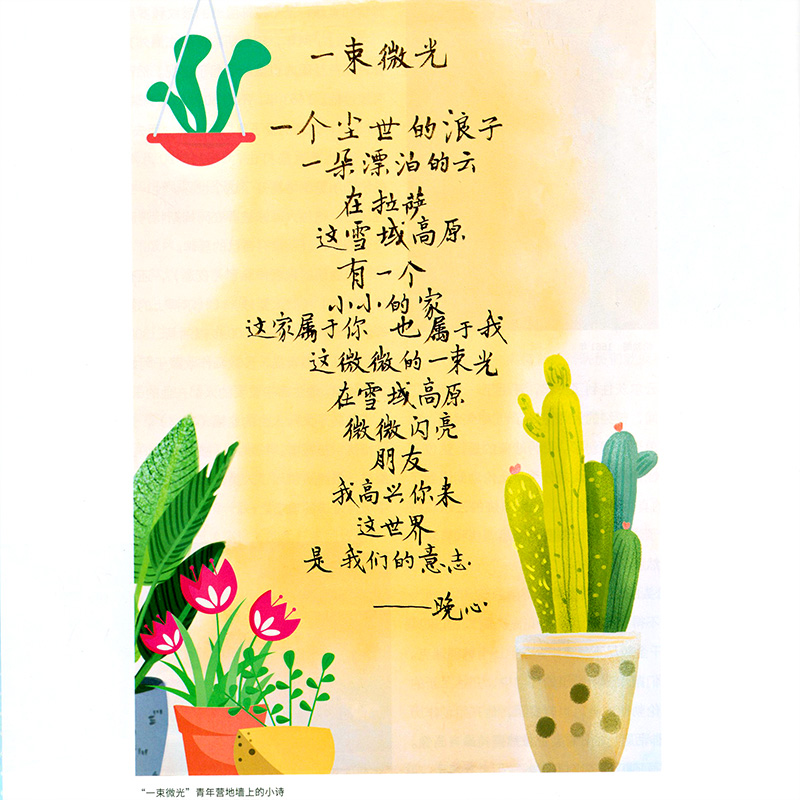 一束微光
一个尘世的浪子
一朵漂泊的云
在拉萨
这雪域高原
有一个
小小的家
这家属于你 也属于我
这微微的一束光
在雪域高原
微微闪亮
朋友
我高兴你来
这世界
是我们的意志
——晚心
“一束微光”青年营地墙上的小诗